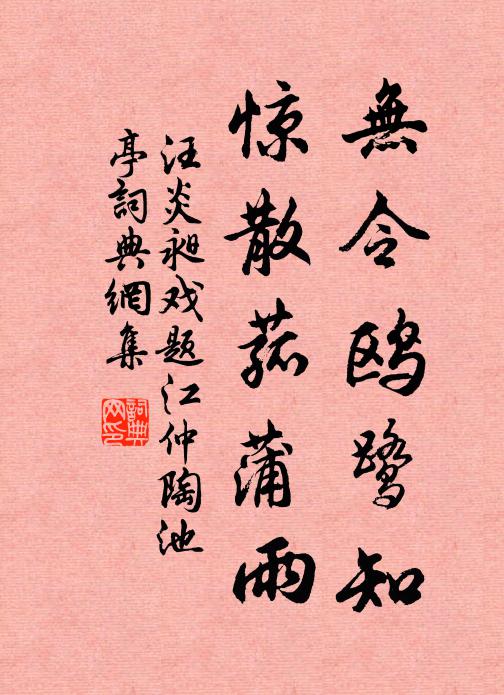 無令鸥鹭知
惊散菰蒲雨
汪炎昶戏题江仲陶池
亭詞典網集
詞典网印